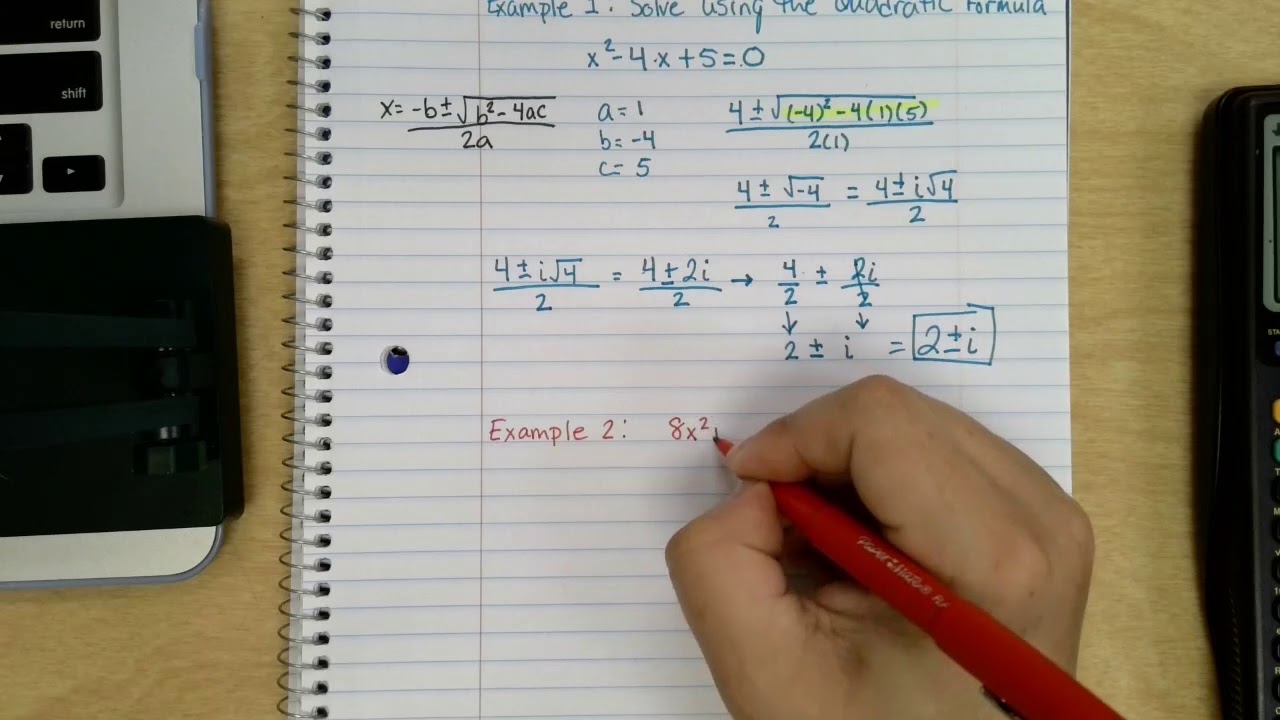 return
shift
Example 1: Solve using the Quadratic Formula
x² - 4·x + 5 = 0
x = -b ± √b² - 4ac / 2a
a = 1
b = -4
c = 5
4 ± √(-4)² - 4(1)(5) / 2(1)
4 ± √-4 / 2 = 4 ± i√4 / 2
4 ± i√4 / 2 = 4 ± 2i / 2 → 4/2 ± 2i/2
↓ ↓
2 ± i = 2 ± i
Example 2: 8x²
Paper Mate